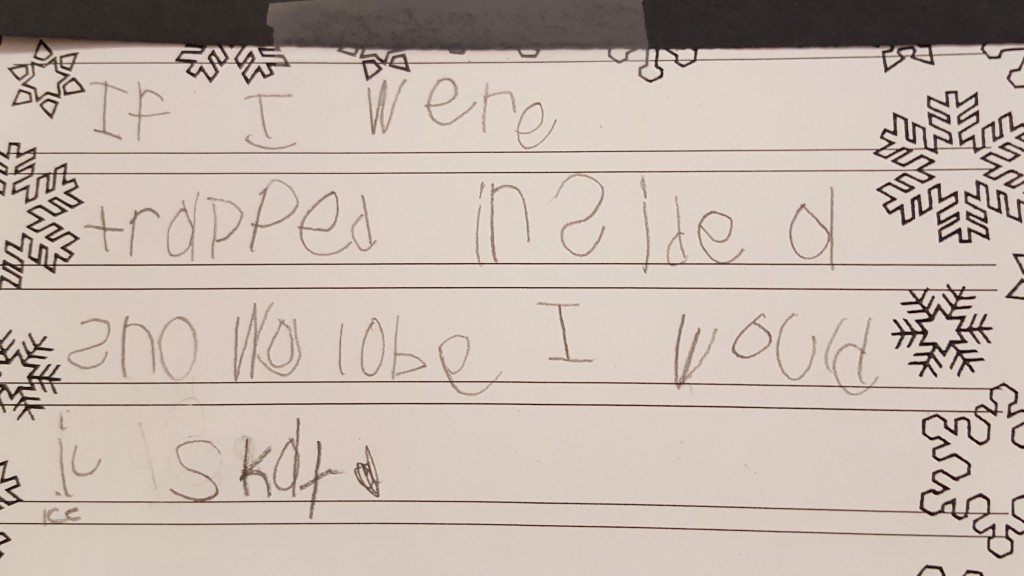 If I were
trapped inside a
snowglobe I would
ic skat
ice